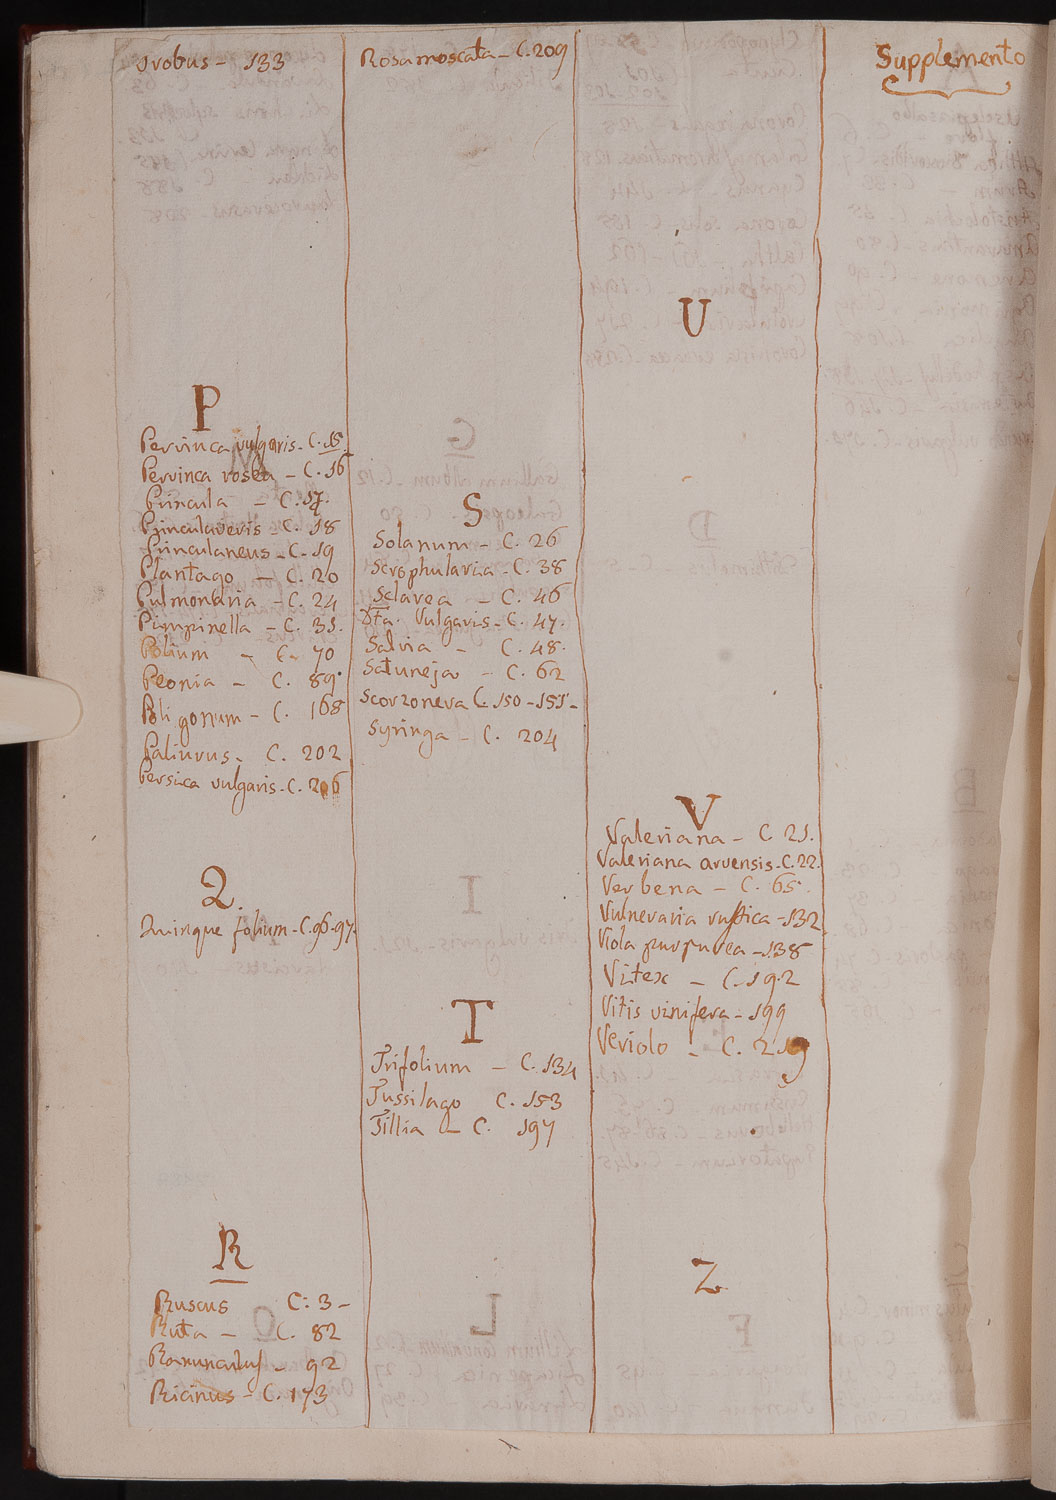 Orobus - 133
P
Pervinca vulgaris - C. 15
Pervinca rosea - C. 16
Primula - C. 17.
Primulaveris - C. 18
- C. 19
Plantago - C. 20
Pulmonaria - C. 24
Pimpinella - C. 31.
Polium - C. 70
Peonia - C. 89.
Poligonum - C. 168
Paliurus - C. 202
Persica vulgaris - C. 206
Q.
Quinque folium - C. 96-97.
R
Ruscus C: 3 -
Ruta - C. 82
Ranunculus - 92
Ricinus - C. 173
Rosa moscata - C. 209
S
Solanum - C. 26
Scrophularia - C. 38
Sclarea - C. 46
Dta. Vulgaris - C. 47.
Salvia - C. 48.
Satureja - C. 62
Scorzonera C. 150 - 151 -
Syringa - C. 204
T
Trifolium - C. 134
Tussilago C. 153
Tillia - C. 197
U
V
Valeriana - C. 21.
Valeriana arvensis - C. 22.
Verbena - C. 65.
Vulneraria rustica - 132
Viola purpurea - 138
Vitex - C. 192
Vitis vinifera - 199
Veriolo - C. 219
Z
Supplemento